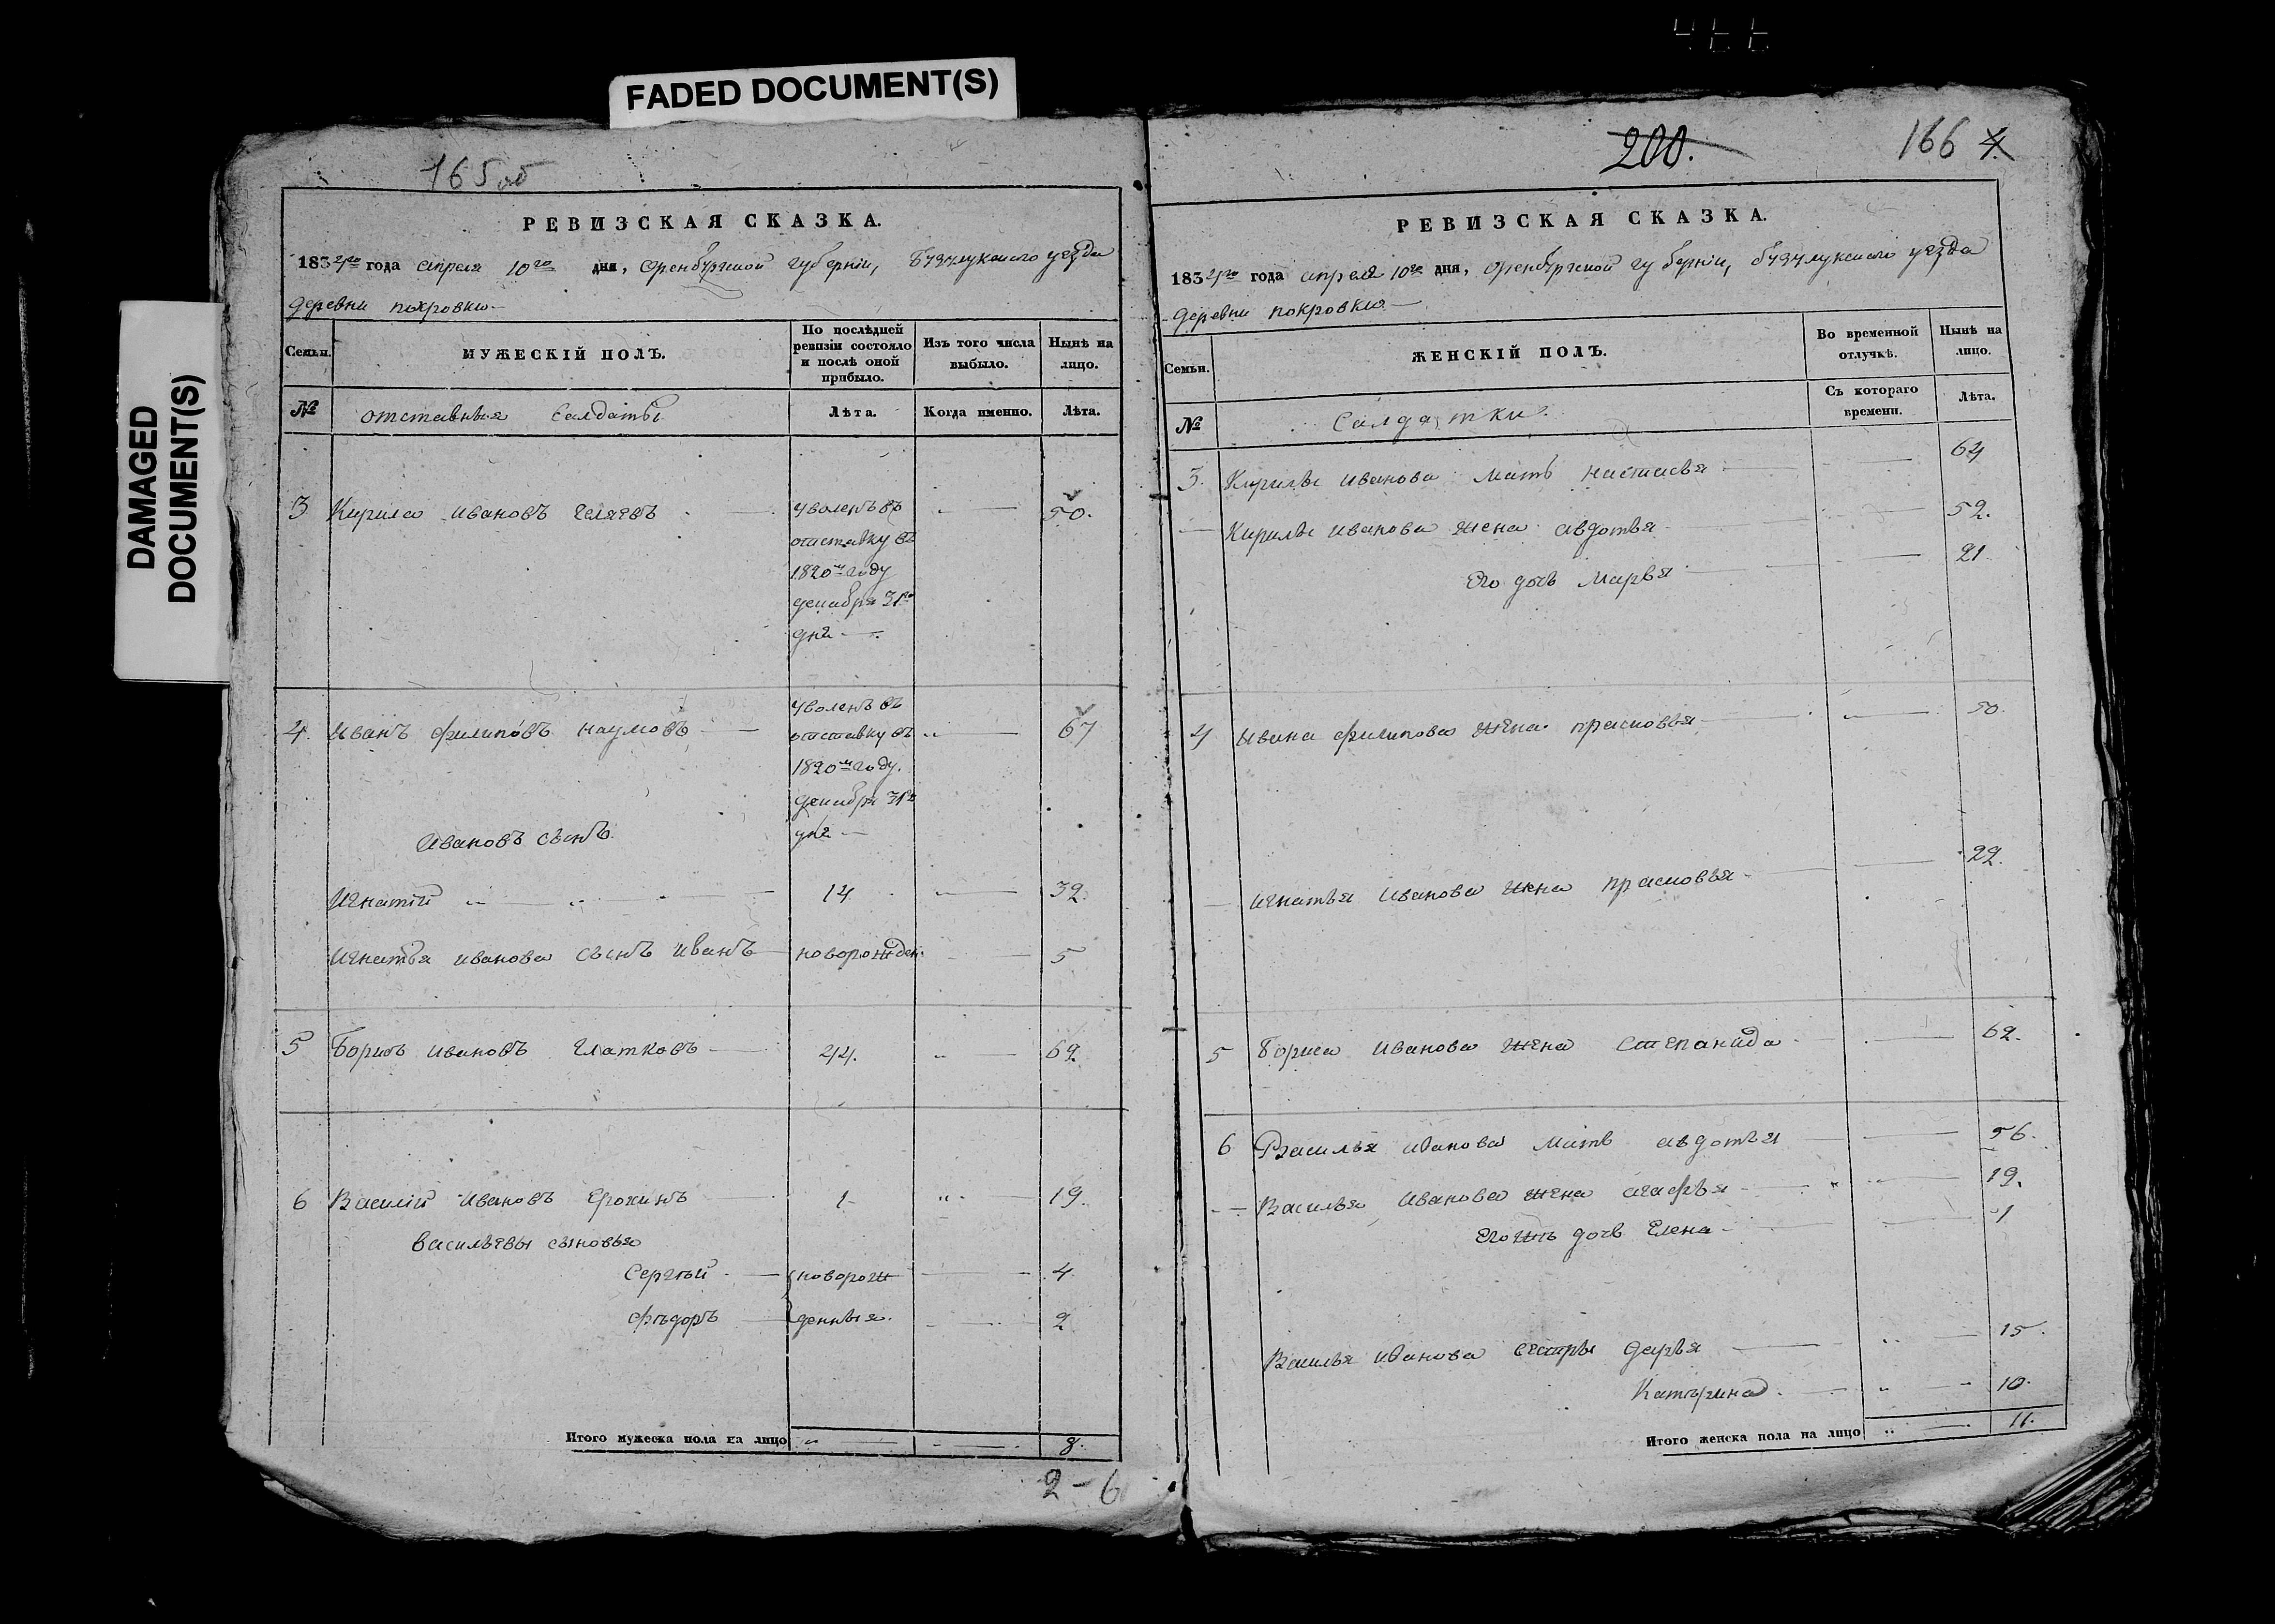 FADED DOCUMENT(S)
DAMAGED
DOCUMENT(S)
165об
РЕВИЗСКАЯ СКАЗКА.
1834го года апреля 10го дня, Оренбургской губерніи, Бузулукскаго уезда
деревни покровки
Семьи.
МУЖЕСКІЙ ПОЛЪ.
По послѣдней ревизіи состояло и послѣ оной прибыло.
Изъ того числа выбыло.
Нынѣ на лицо.
№
отставныя Салдаты
Лѣта.
Когда именно.
Лѣта.
3 Кирила Ивановъ
уволенъ въ
отставку въ
1820м году
декабря 31го
дня
50.
4. Иванъ филиповъ наумовъ
уволенъ въ
отставку въ
1820м году.
декабря 31го
дня
67
Ивановъ сынъ
Игнатій 14 32.
Игнатья иванова сынъ иванъ новорожден. 5
5 Борисъ ивановъ Глатковъ 44. 62.
6 Василій ивановъ Ерохинъ 1 19.
васильевы сыновья
Сергѣй новорож 4
фѣдоръ денныя. 2
Итого мужеска пола на лицо 8.
2-6
200.
166 4.
РЕВИЗСКАЯ СКАЗКА.
1834го года апреля 10го дня, Оренбургской губерніи, бузулукскаго уезда
деревни покровки
Семьи.
ЖЕНСКІЙ ПОЛЪ.
Во временной отлучкѣ.
Нынѣ на лицо.
№
Салдатки.
Съ котораго времени.
Лѣта.
3. Кирилы иванова мать настасья 64
Кирилы иванова жена авдотья 52.
Его дочь Марвя 21
4 ивана филипова жена прасковья 50.
игнатья иванова жена прасковья 22.
5 бориса иванова жена степанида 62.
6 Василья иванова мать авдотья 56.
Василья иванова жена агафья 19.
Егожъ дочь Елена 1
Василья иванова сестры дарья 15.
Катѣрина. 10.
Итого женска пола на лицо 11.